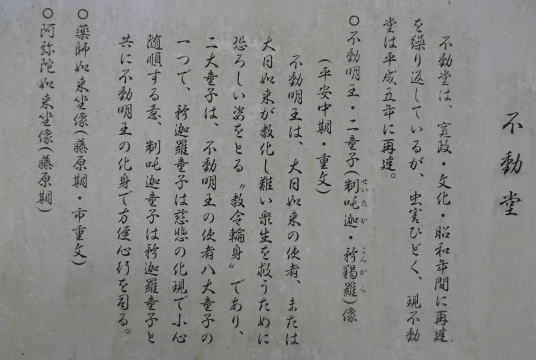 不動堂
不動堂は、寛政・文化・昭和年間に再建
を繰り返しているが、虫害ひどく、現不動
堂は平成五年に再建。
○不動明王・二童子(制吒迦・矜羯羅)像
せいたか
こんがら
(平安中期・重文)
不動明王は、大日如来の使者、または
大日如来が教化し難い衆生を救うために
恐ろしい姿をとる〝教令輪身〟であり、
二大童子は、不動明王の使者八大童子の
一つで、矜迦羅童子は慈悲の化現で小心
随順する意、制吒迦童子は矜迦羅童子と
共に不動明王の化身で方便心行を司る。
○薬師如来坐像(藤原期・市重文)
○阿弥陀如来坐像(藤原期)